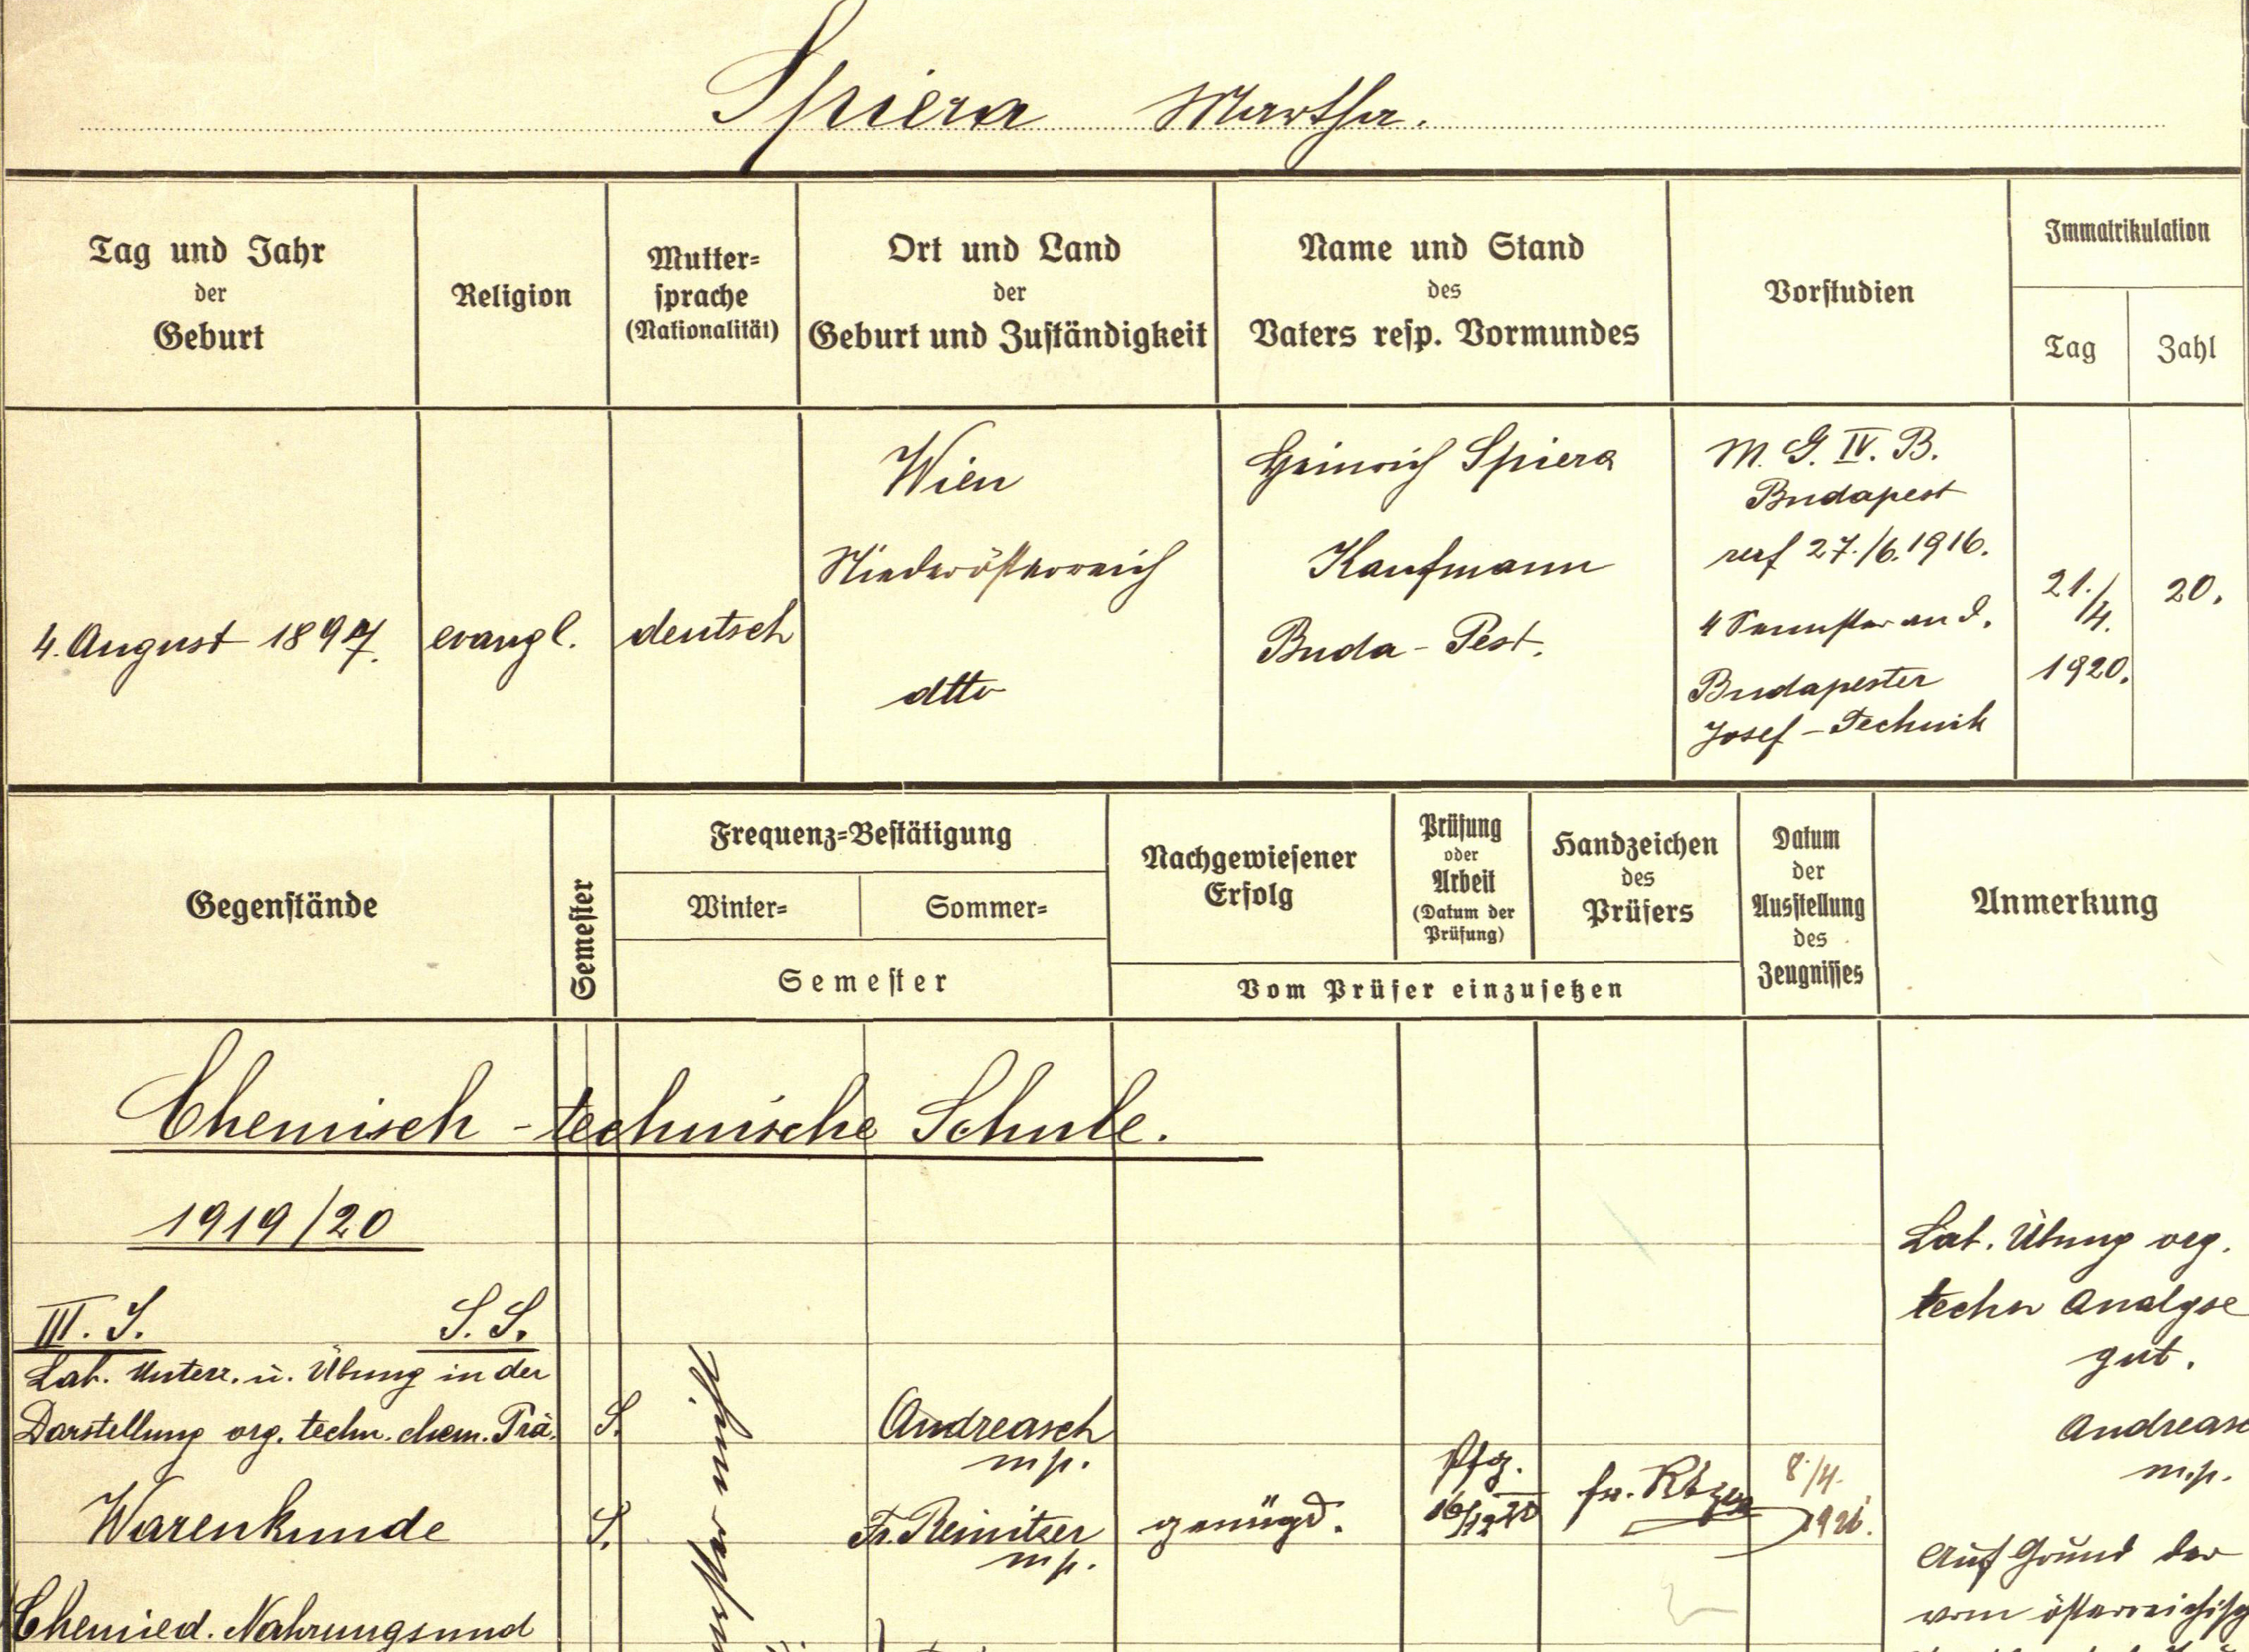 Spiera Martha.
Tag und Jahr
der
Geburt
Religion
Mutter-
sprache
(Nationalität)
Ort und Land
der
Geburt und Zuständigkeit
Name und Stand
des
Vaters resp. Vormundes
Vorstudien
Immatrikulation
Tag
Zahl
4. August 1897.
evangl.
deutsch
Wien
Niederösterreich
dtto
Heinrich Spiera
Kaufmann
Buda-Pest.
M. G. IV. B.
Budapest
reif 27./6.1916.
4 Semester an d.
Budapester
Josef-Technik
21./4.
1920.
20.
Gegenstände
Semester
Frequenz-Bestätigung
Winter-
Sommer-
Semester
Nachgewiesener
Erfolg
Prüfung
oder
Arbeit
(Datum der
Prüfung)
Handzeichen
des
Prüfers
Vom Prüfer einzusetzen
Datum
der
Ausstellung
des
Zeugnisses
Anmerkung
Chemisch-technische Schule.
1919/20
III. J. S. S.
Lab. Unterr. u. Übung in der
Darstellung org. techn. chem. Prä.
S.
Andreasch
m.p.
Warenkunde
S.
Fr. Reinitzer
m.p.
genügd.
Pfg.
16/12 20
fr.
8./4.
Chemie d. Nahrungs und
nicht
Lab. Übung org.
techn Analyse
gut.
Andreasc
m.p.
Auf Grund der
vom österreichisch